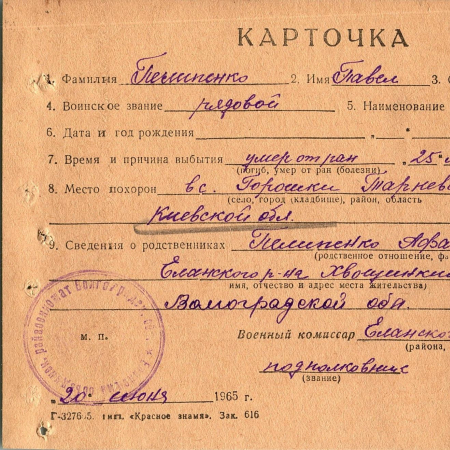 КАРТОЧКА
1. Фамилия Пелипенко 2. Имя Павел 3.
4. Воинское звание рядовой 5. Наименование
6. Дата и год рождения
7. Время и причина выбытия умер от ран "25"
(погиб, умер от ран (болезни)
8. Место похорон в с. Горошки
(село, город (кладбище), район, область
Киевской обл.
9. Сведения о родственниках Пелипенко
(родственное отношение, фа
Еланского р-на
имя, отчество и адрес места жительства)
Волгоградской обл.
М. П. Военный комиссар Еланско
(района,
подполковник
(звание)
„20" июня 1965 г.
Г-32765. тип. «Красное знамя». Зак. 616